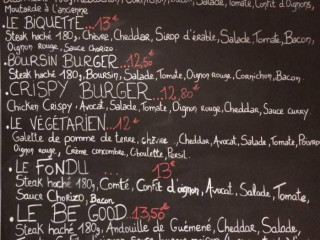 Salade, Tomate, Confit d'Oignons,
Moutarde à l'ancienne
LE BIQUETTE...13€
Steak haché 180g, Chèvre, Cheddar, Sirop d'érable, Salade, Tomate, Bacon,
Oignon rouge, Sauce Chorizo.
BOURSIN BURGER...12,50€
Steak haché 180g, Boursin, Salade, Tomate, Oignon rouge, Cornichon, Bacon.
CRISPY BURGER....12,80€
Chicken Crispy, Avocat, Salade, Tomate, Oignon rouge, Cheddar, Sauce curry.
LE VÉGÉTARIEN...12€
Galette de pomme de terre, chèvre, Cheddar, Avocat, Salade, Tomate, Poivron
Oignon rouge, Crème concombre, Ciboulette, Persil.
LE FONDU ... 13€
Steak haché 180g, Comté, Confit d'oignon, Avocat, Salade, Tomate,
Sauce Chorizo, Bacon
LE BE GOOD. 13,50€
Steak haché 180g, Andouille de Guémené, Cheddar, Salade,